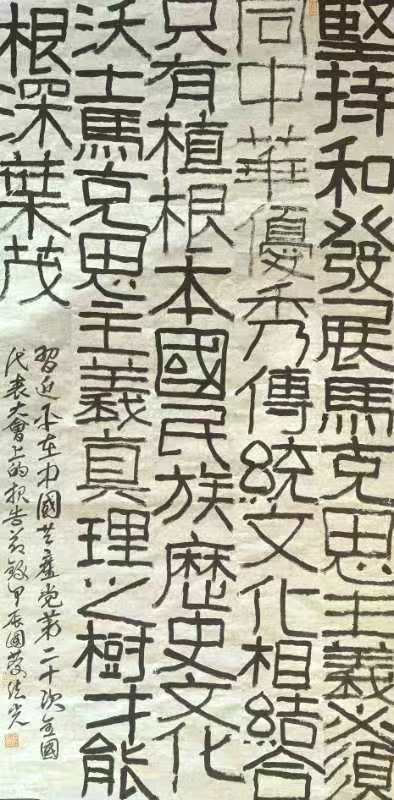 堅持和發展馬克思主義必須
同中華優秀傳統文化相結合
只有植根本國民族歷史文化
沃土馬克思主義真理之樹才能
根深葉茂
習近平在中國共產党第二十次全國
代表大會上的报告前敘甲辰國慶